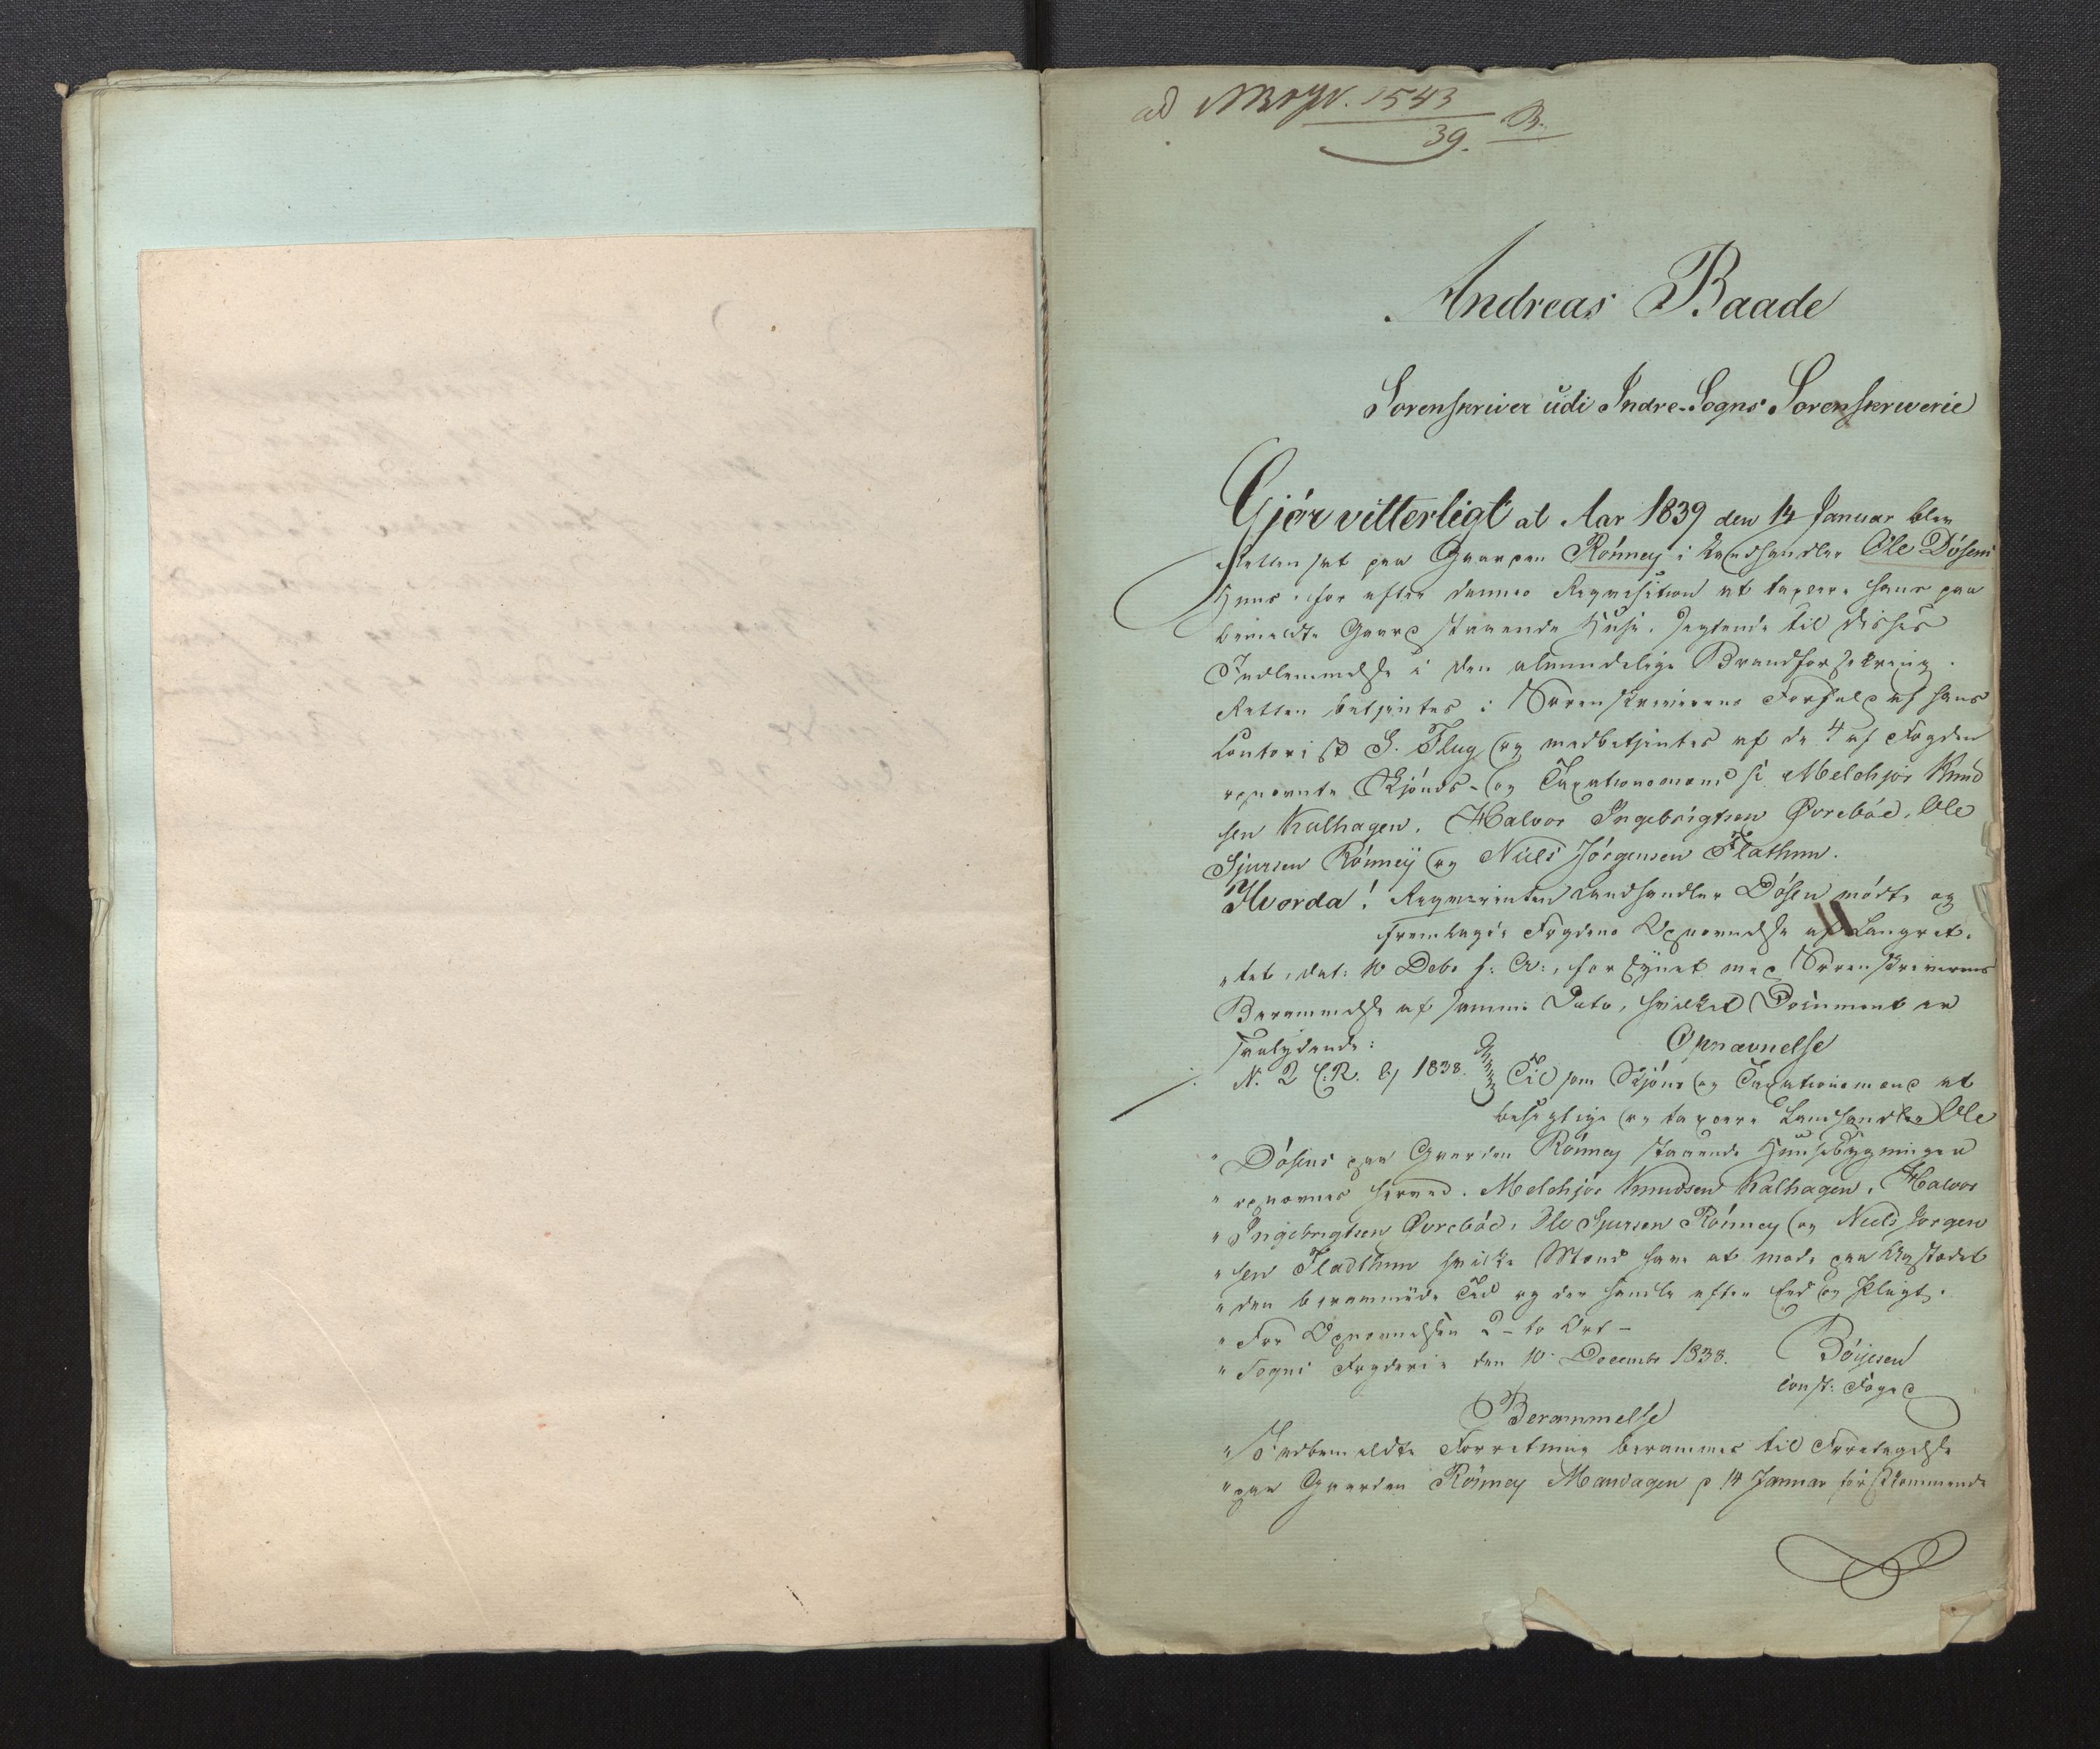 ad Nrogr. 1543
39. B.
Andreas Baade
Sorenskriver udi Indre-Sogns Sorenskriverie
Gjør vitterligt at Aar 1839 den 14 Januar blev
Retten sat paa Gaarden Rönney i Landhandler Ole Dösens
Huus, for efter dennes Reqvisition at taxere hans paa
bemeldte Gaard staaende Huse, sigtende til disses
Indlemmelse i den almindelige Brandforsikring.
Retten betjentes i Sorenskriverens Forfald af hans
Contorist S. Flug og medbetjentes af de 4 af Fogden
opnævnte Skjöns- og Taxationsmænd Melchjor Knud
sen Kalhagen, Halvor Ingebrigtsen Øvreböe, Ole
Sjursen Rönneÿ og Niels Jörgensen Flathum.
Hvorda! Reqvirenten Landhandler Dösen mödte og
fremlagde Fogdens Opnævnelse af Laugret,
"tet, dat: 10 Debr f: A:, forsÿnet med Sorenskriverens
Berammelse af samme Dato, hvilket Document er
saalydende:
Opnævnelse
N. 2 E.R. 6/ 1838.
Til som Skjöns og Taxationsmænd at
besigtige og taxere Landhandler Ole
" Dösens paa Gaarden Rönney staaende Huusebygninger
" opnævnes herved. Melchjor Knudsen Kalhagen, Halvor
" Ingebrigtsen Øvreböe, Ole Sjursen Rönney og Niels Jorgen
" sen Fladthum hvilke Mænd have at möde paa Aastædet
" den berammede Tid og der handle efter Eed og Pligt.
" For Opnævnelsen 2 - to Ort -
" Sogns Fogderie den 10 Decembr 1838. Böÿesen
const: Foged
Berammelse
" Indbemeldte Forretning berammes til Foretagelse
" paa Gaarden Rönney Mandagen d 14 Januar förstkommende